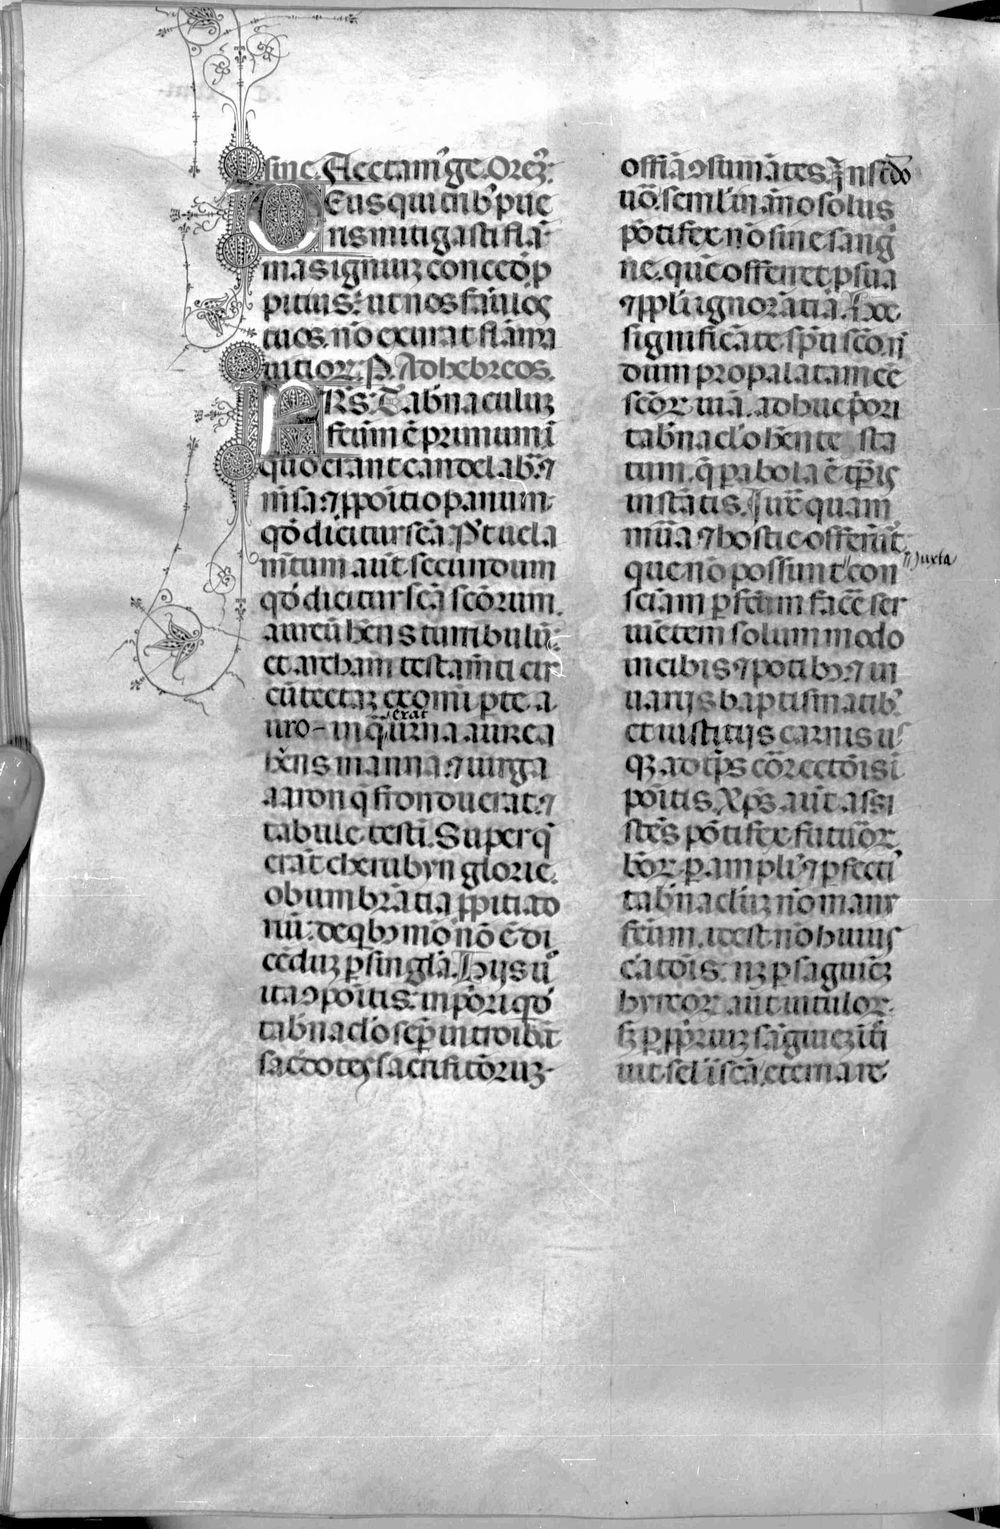 sine. Flectam' ge. Orem9:
Deus qui trib' pue
ris mitigasti flā
mas igniuʒ concedē p
pitius: ut nos famlos
tuos nō exurat flāma
uitior. P. Ad hebreos.
FRs. Tab'naculuʒ
fctum ē primum ī
quo erant candelab. ⁊
mēsa. ⁊ ppositio panum.
qd̄ dicitur scā. P' uela
mtum aut̄ secundum
qd̄ dicitur scā scōrum.
aureū hēns turribulū:
et archam testamti cir
cūtectaʒ ex omī pte a
uro- in q̄ erat urna aurea
hēns manna. ⁊ uirga
aaron q̄ fronduerat. ⁊
tabule testī. Superq̄
erāt cherubyn glorie.
obumbrātia ppitiato
riū: de qb9 mō nō ē di
cēduʒ p singla. Hijs u͛
ita 9poītis: in pōri qd̄
tab'naclo semp introibāt
sacdotes sacrificōruʒ.
offīa 9sumātes. In scdo
uō. seml' in āno solus
pōtifex nō sine sang'
ne. quē offerret p sua
⁊ ppli ignorātia. Hoc
significāte spū scō. n̄
dum propalatam eē
scōr uiā. adhuc pōri
tab'naclo hēnte sta
tum. q̄ parabola ē tp̄is
instātis. Jux̄ quam
mūa ⁊ hostie offerūt̄.
que nō possunt con
iuxta
sciam pfctum facē ser
uiētem solummodo
in cibis ⁊ potib9: ⁊ in
uarijs baptismatib'
et iustitijs carnis us
qʒ ad tp̄s cōrectōis ī
poītis. Xps aūt assi
stēs pōtifex futuōr
bōr. p ampli' ⁊ pfecti'
tab'nacluʒ nō manu
fctum. idest nō huius
cātōis: nʒ p sāguinē
hyrcor aut uitulor.
sʒ p ppriuʒ sāguinēʒ ītro
iuit sel' ī scā. eterna re